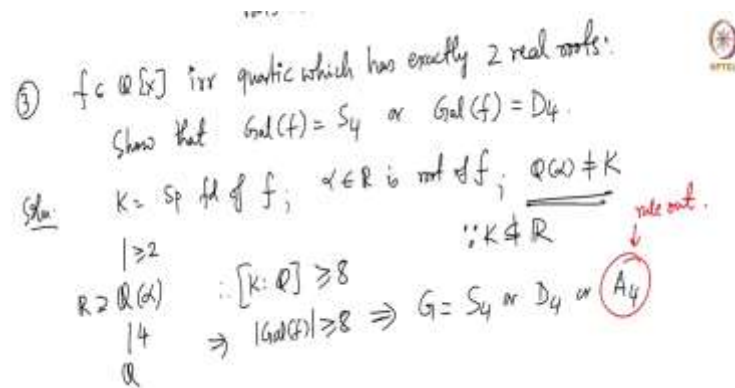 ③ f ∈ Q[x] irr quartic which has exactly 2 real roots.
Show that Gal(f) = S₄ or Gal(f) = D₄.
Soln. K = sp fd of f; α ∈ R is root of f; Q(α) ≠ K
∵ K ⊄ R
rule out.
| ≥2
R ⊇ Q(α) ∴ [K:Q] ≥ 8
| 4 ⇒ |Gal(f)| ≥ 8 ⇒ G = S₄ or D₄ or A₄
Q
NPTEL